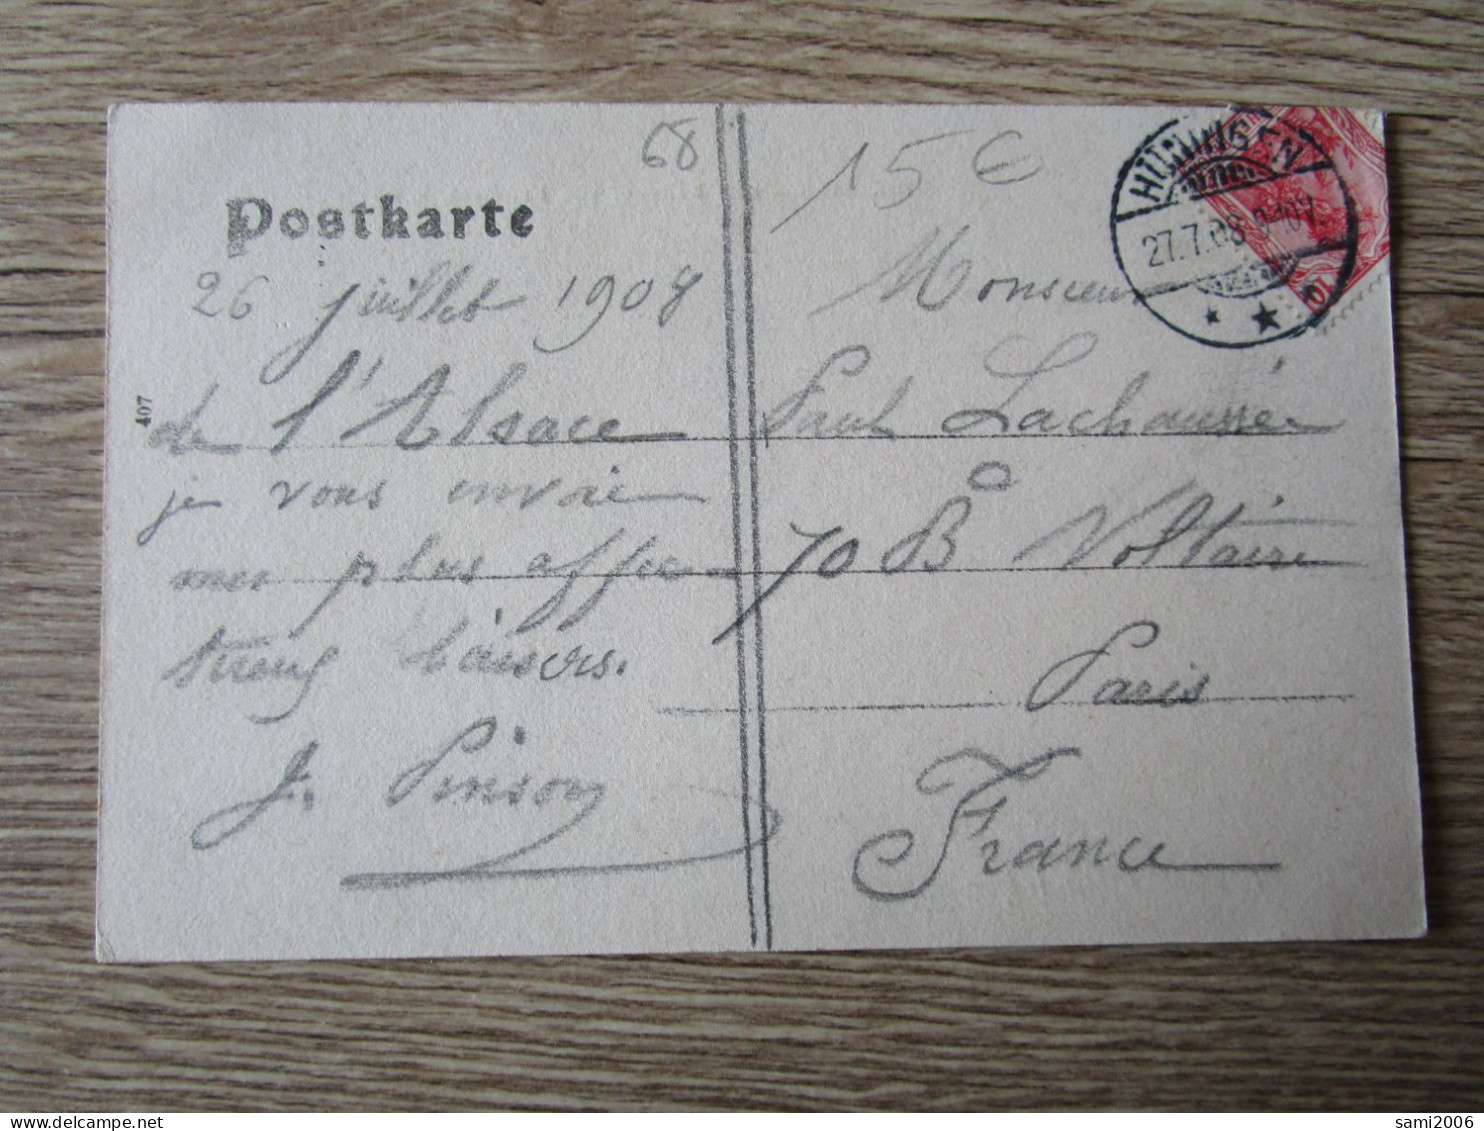 68
15 €
Postkarte
26 juillet 1908
de l'Alsace
je vous envoie
mes plus affec
tueux baisers.
J. Pinson
407
HÜNINGEN
27.7.08. 9-10V.
10
Monsieur
Paul Lachaussée
70 Bd Voltaire
Paris
France
sami2006